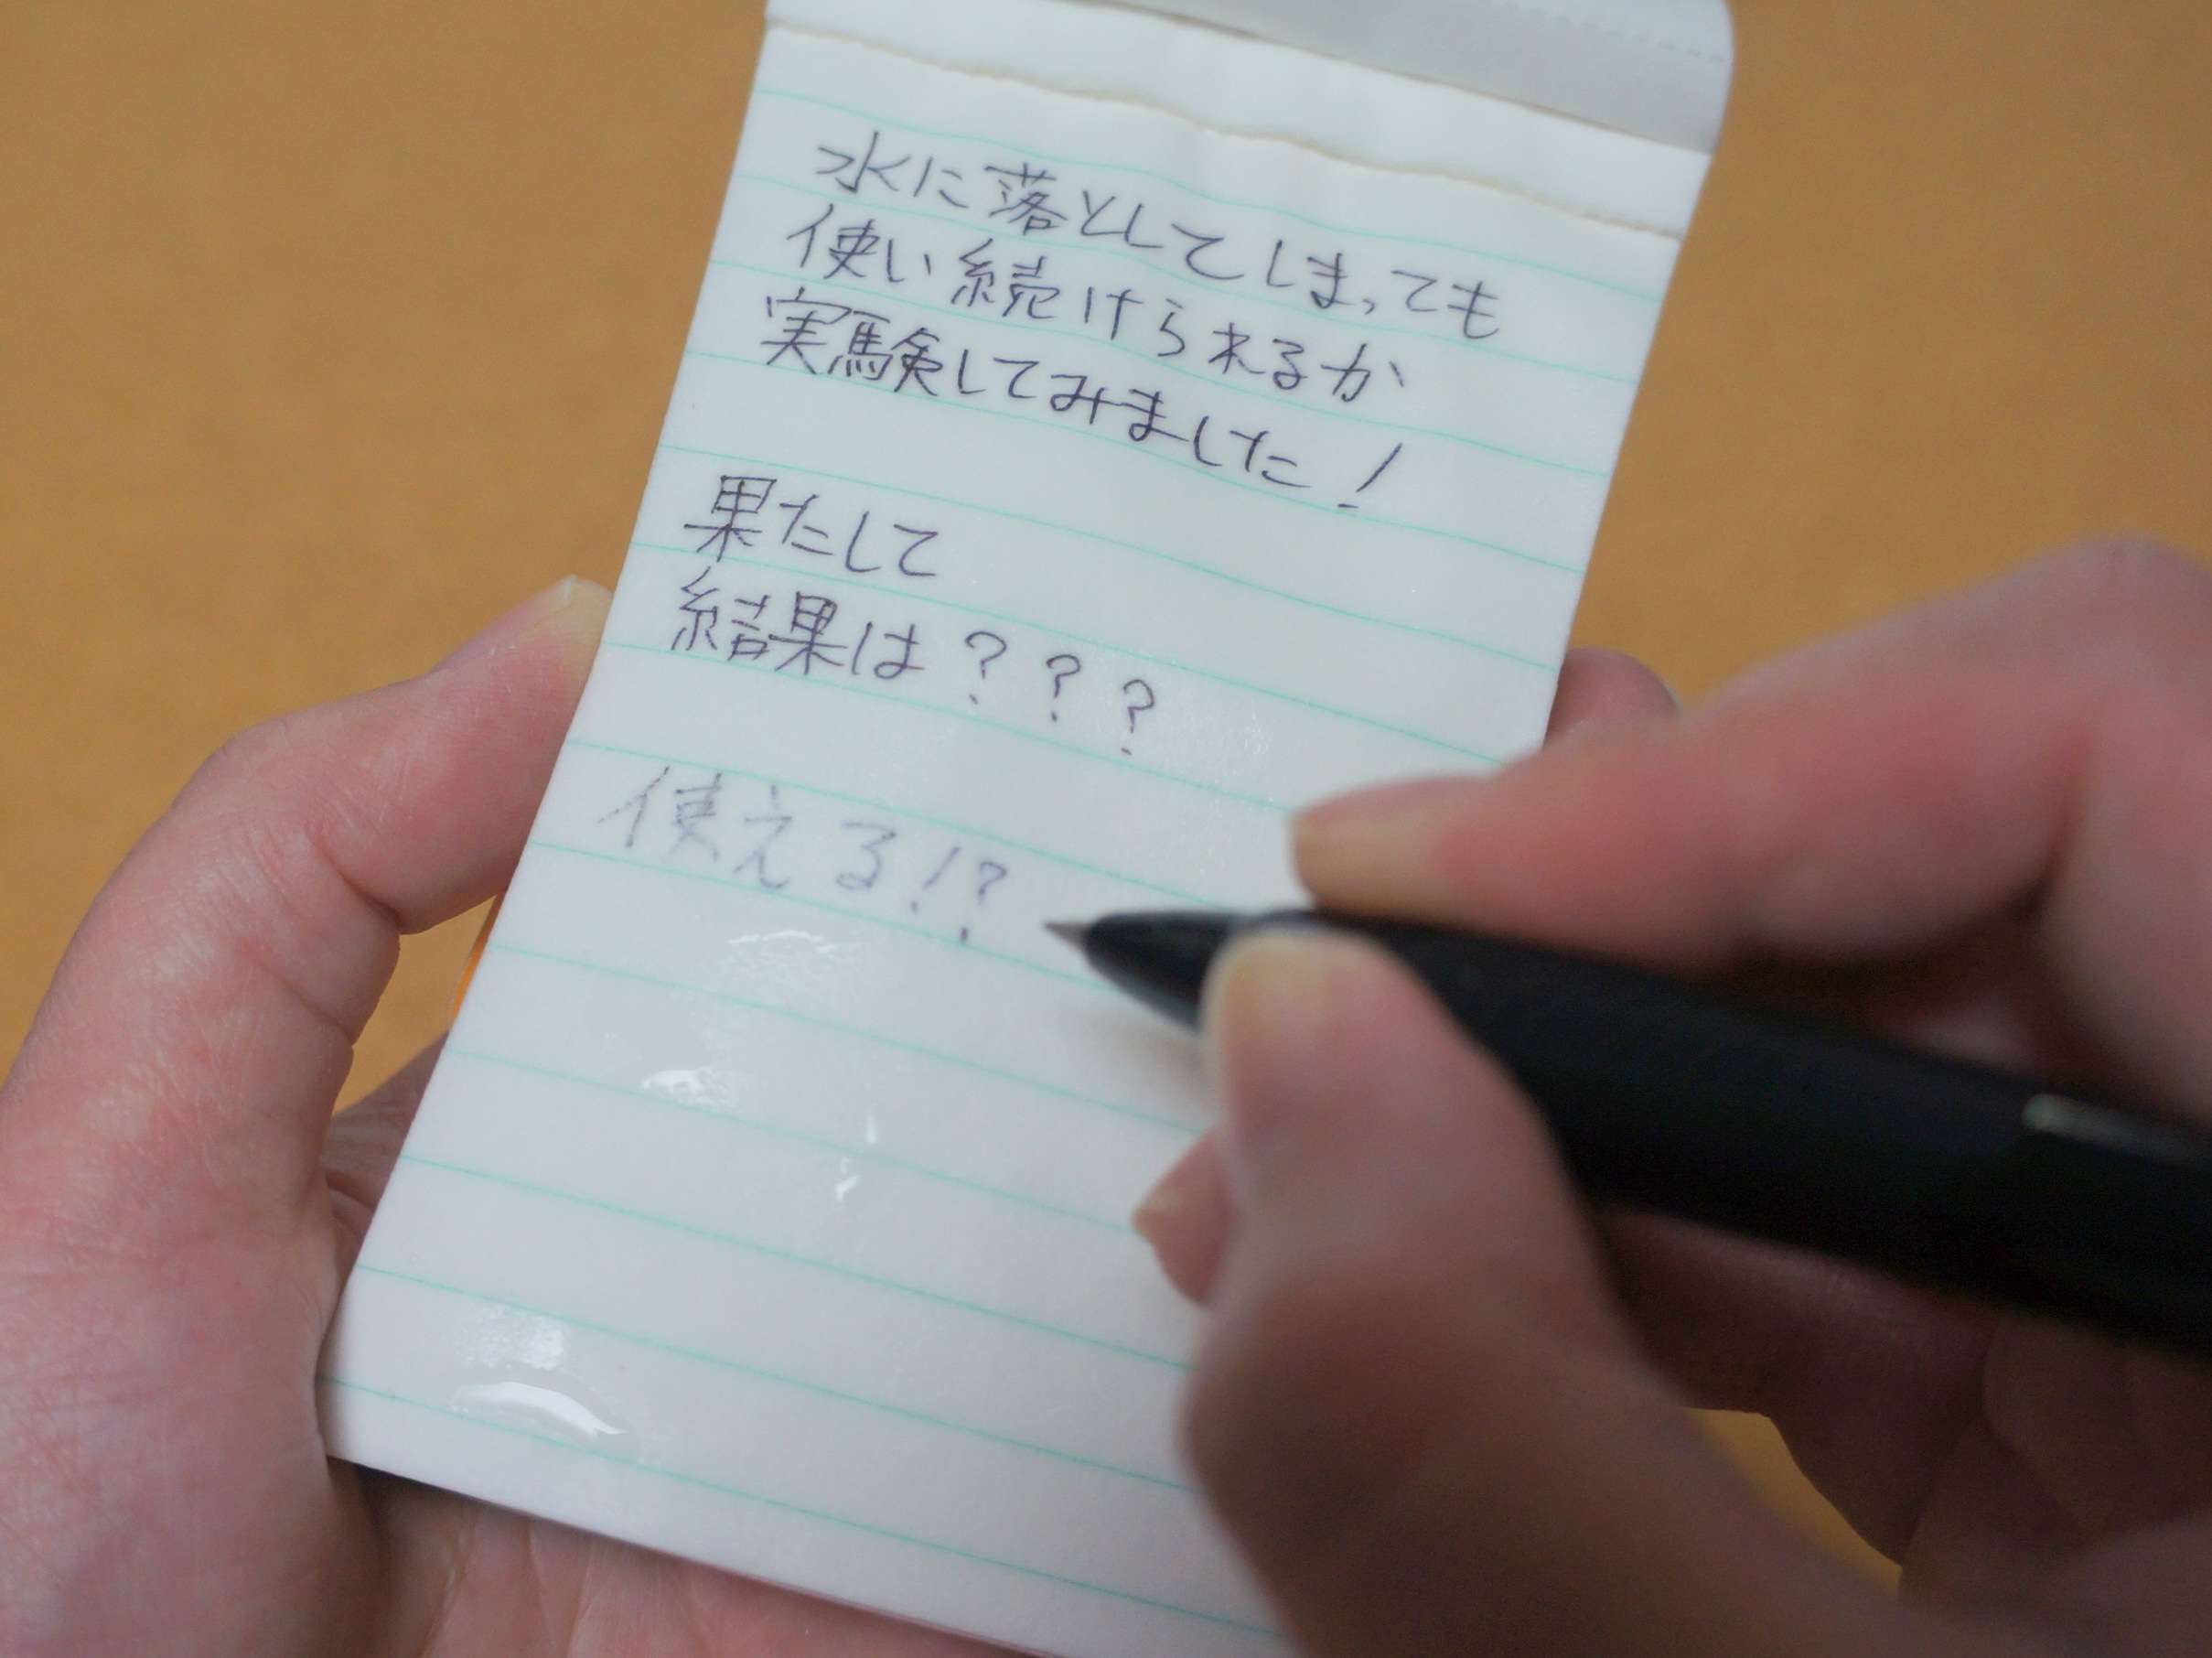 水に落としてしまっても
使い続けられるか
実験してみました!
果たして
結果は???
使える!?